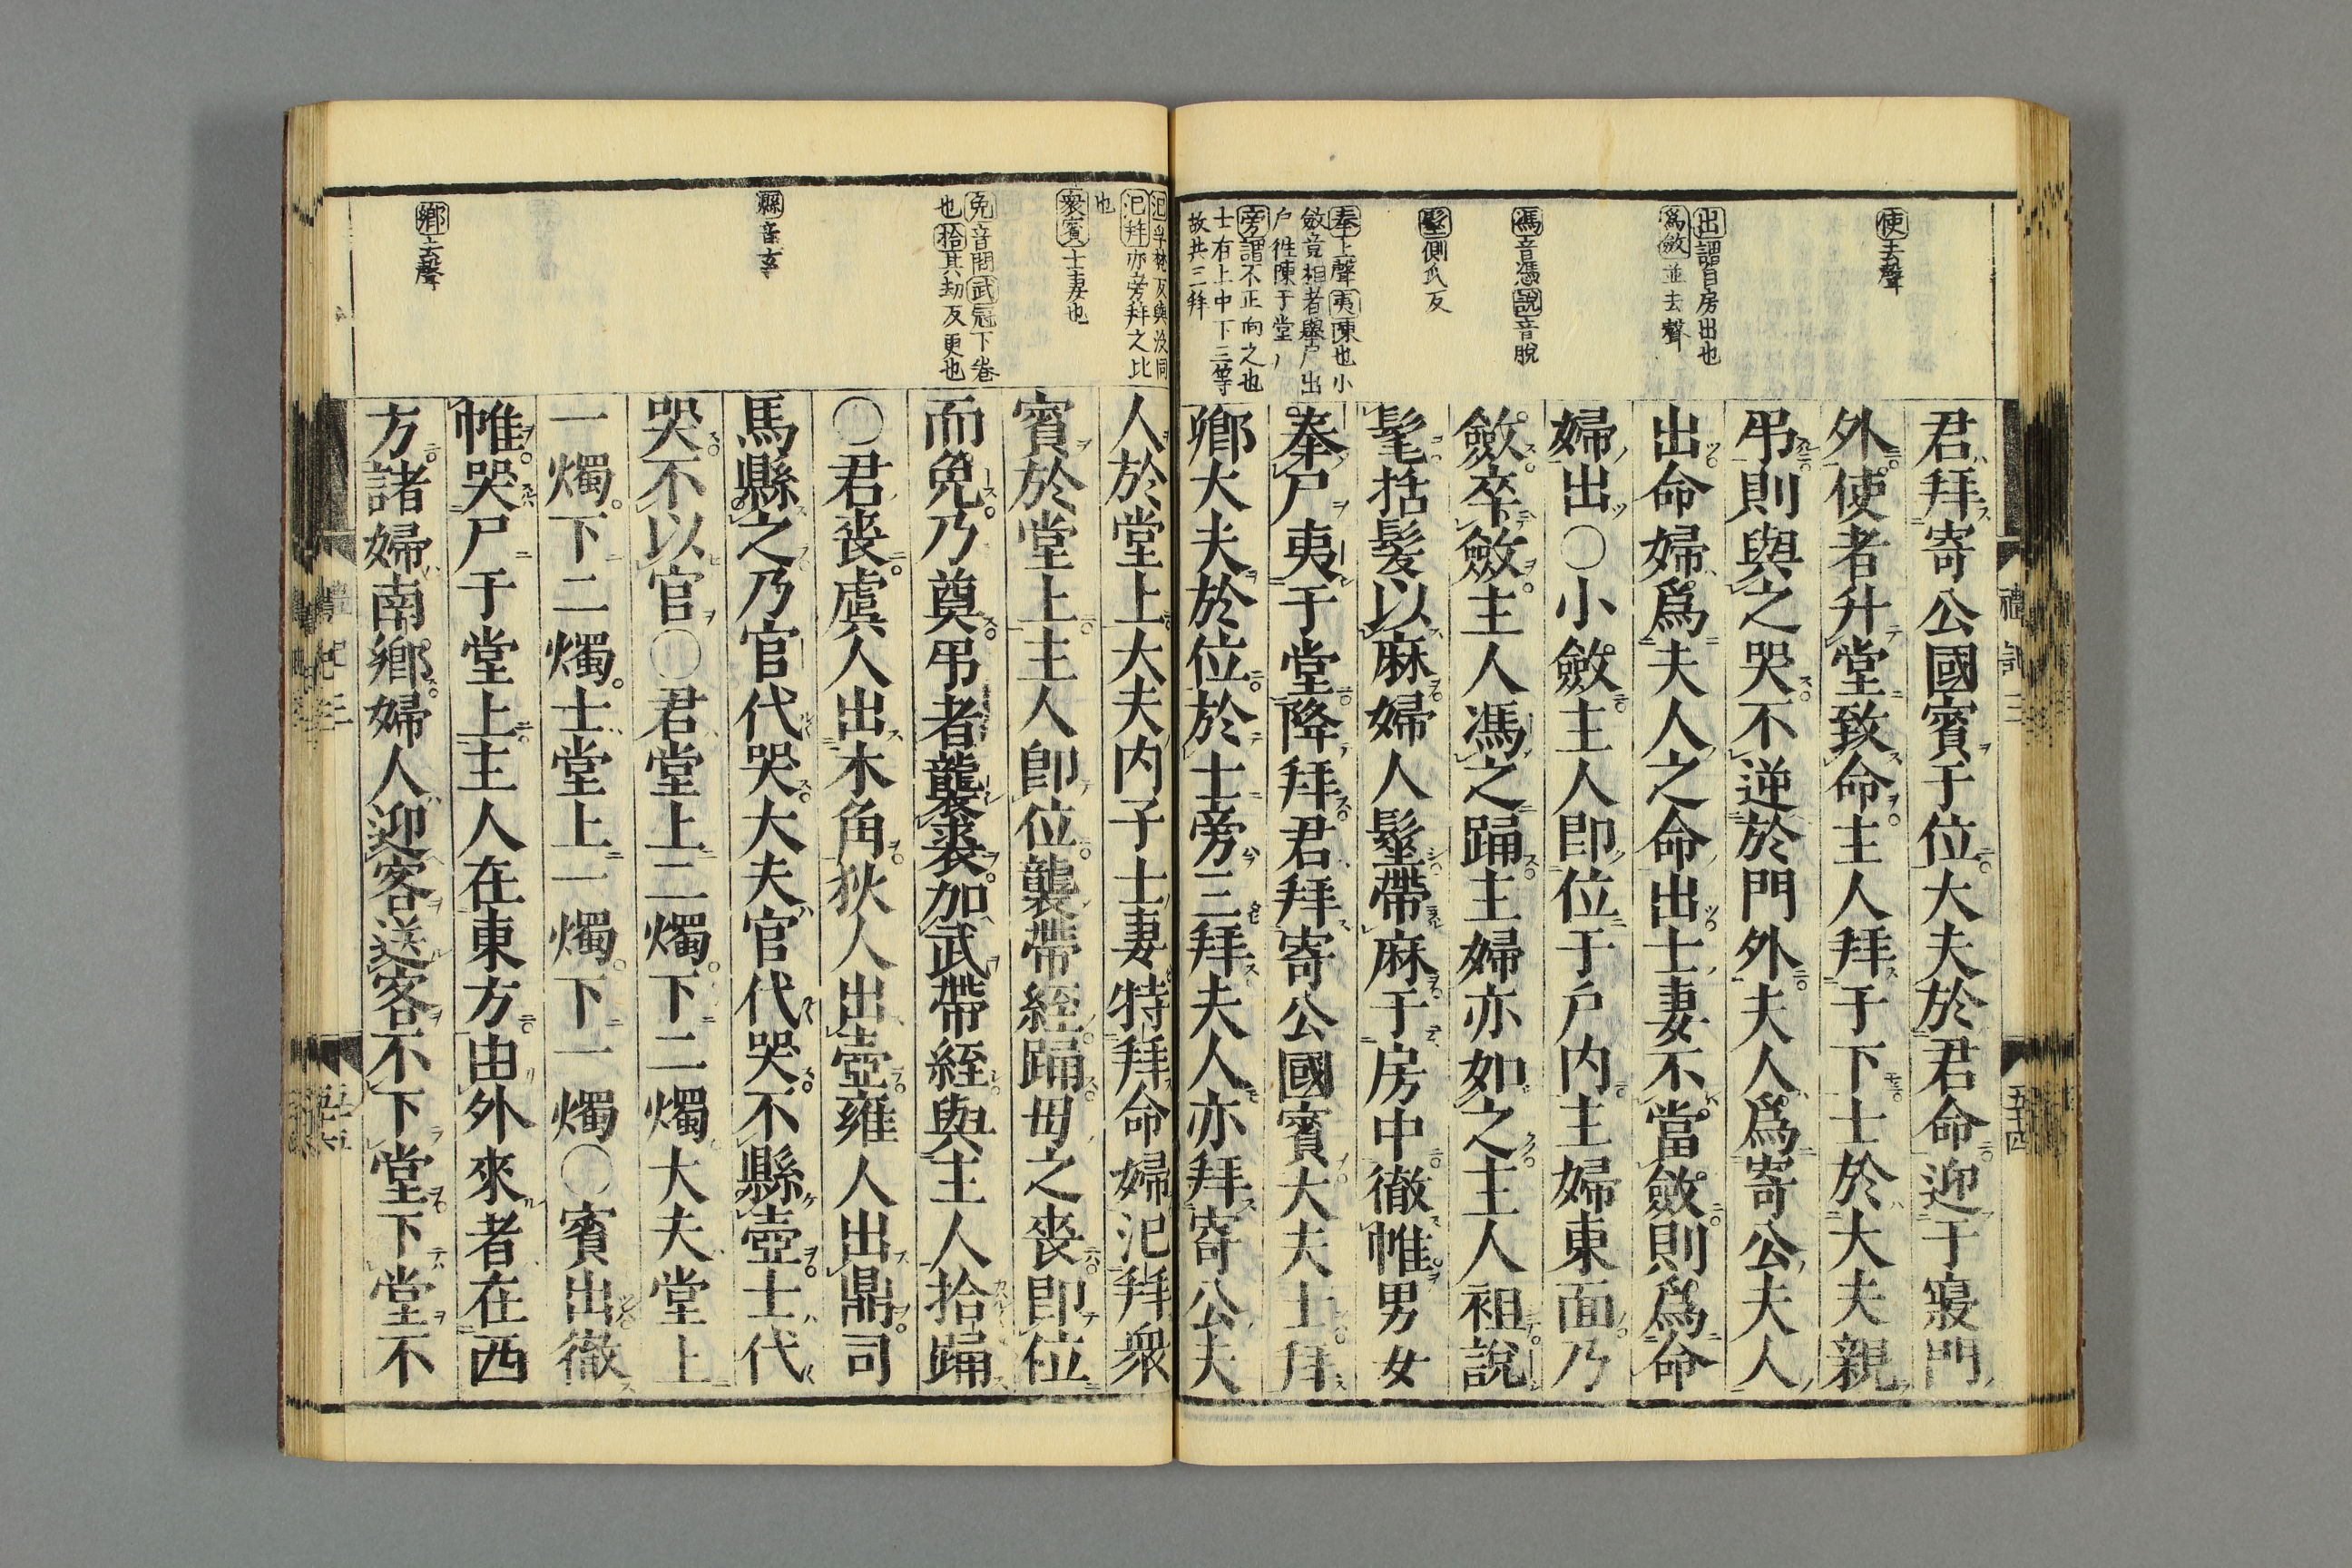 使去聲
出謂自房出也
爲斂並去聲
馮音憑說音脫
髽側瓜反
奉上聲夷陳也小
斂竟相者舉尸出
户徃陳于堂
旁謂不正向之也
士有上中下三等
故共三拜
君拜寄公國賓于位大夫於君命迎于寢門
外使者升堂致命主人拜于下士於大夫親
弔則與之哭不逆於門外夫人爲寄公夫人
出命婦爲夫人之命出士妻不當斂則爲命
婦出○小斂主人即位于戶內主婦東面乃
斂卒斂主人馮之踊主婦亦如之主人袒說
髦括髮以麻婦人髽帶麻于房中徹帷男女
奉尸夷于堂降拜君拜寄公國賓大夫士拜
卿大夫於位於士旁三拜夫人亦拜寄公夫
禮記三
五十四
氾孚梵反與汎同
氾拜亦旁拜之比
也
衆賓士妻也
免音問武冠下卷
也拾其劫反更也
縣音玄
鄉去聲
人於堂上大夫内子士妻特拜命婦氾拜衆
賓於堂上主人即位襲帶絰踊毋之喪即位
而免乃奠弔者襲裘加武帶絰與主人拾踊
○君喪虞人出木角狄人出壺雍人出鼎司
馬縣之乃官代哭大夫官代哭不縣壺士代
哭不以官○君堂上二燭下二燭大夫堂上
一燭下二燭士堂上一燭下一燭○賓出徹
帷哭尸于堂上主人在東方由外來者在西
方諸婦南鄉婦人迎客送客不下堂下堂不